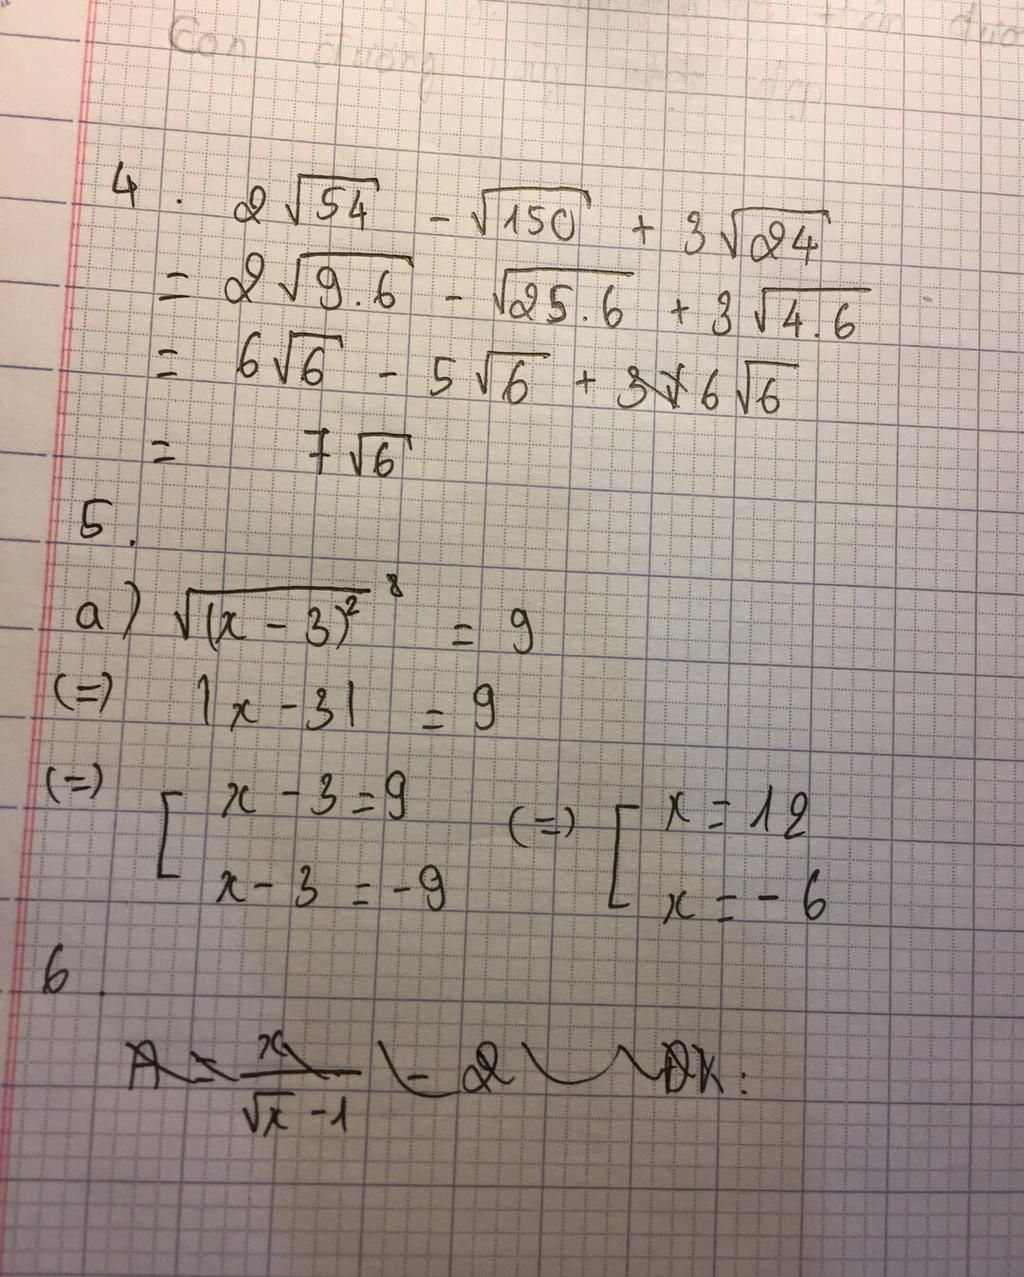 Con đường
4. 2√54 - √150 + 3√24
= 2√9.6 - √25.6 + 3√4.6
= 6√6 - 5√6 + 6√6
= 7√6
5.
a) √(x - 3)² = 9
(=) |x - 3| = 9
(=) [ x - 3 = 9 (=) [ x = 12
x - 3 = -9 x = -6
6.
A = x/(√x - 1) - 2 ĐK: